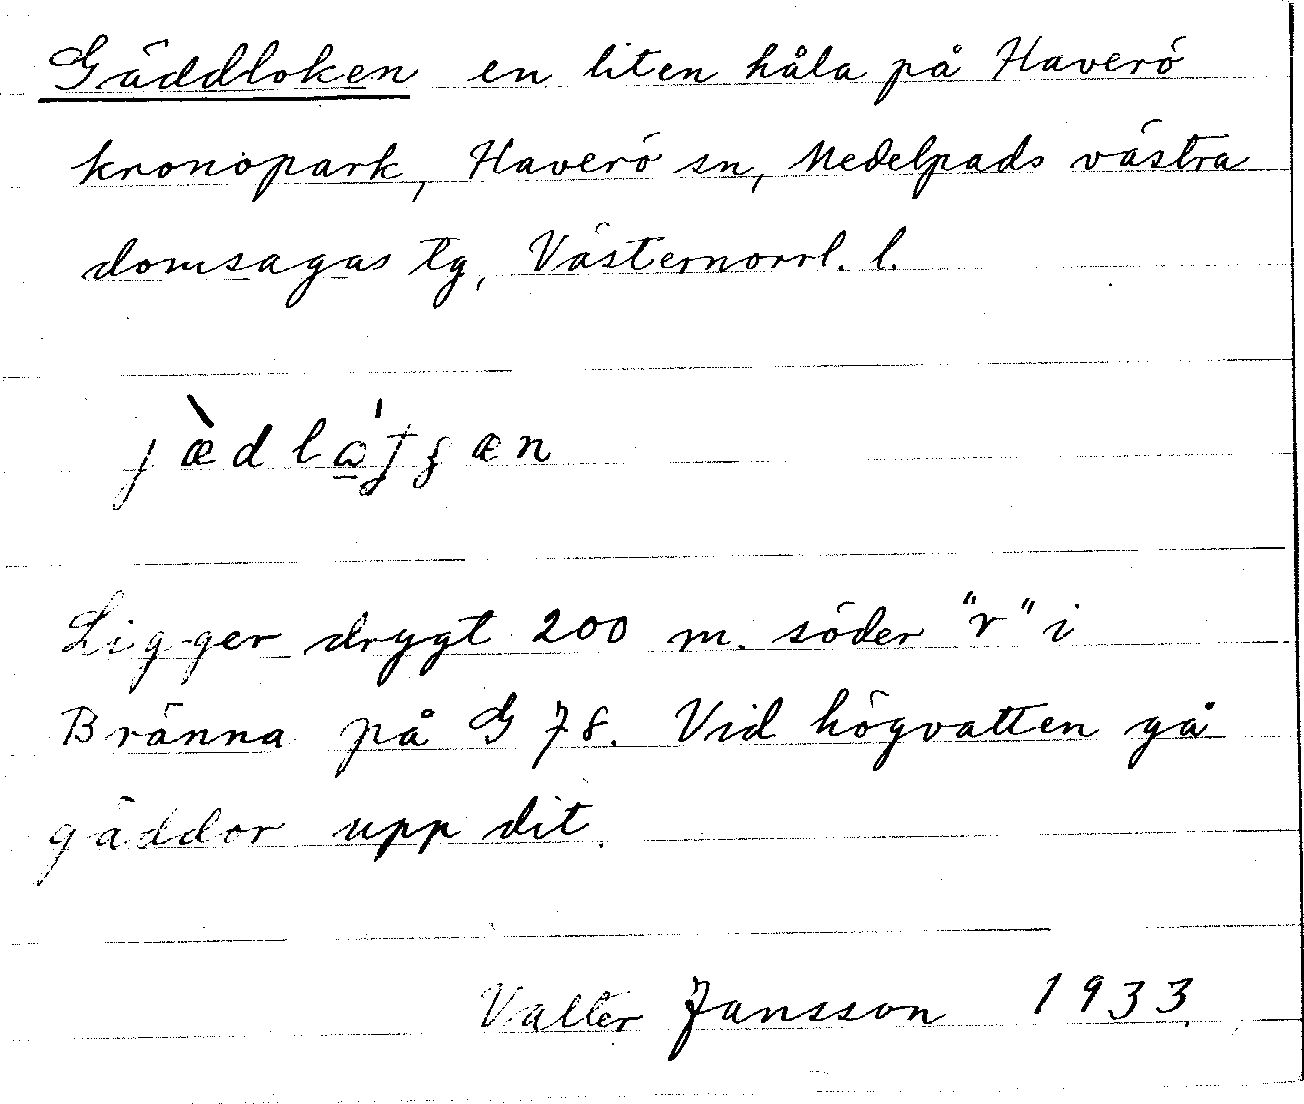 Gäddloken en liten håla på Haverö
kronopark, Haverö sn, Medelpads västra
domsagas tg, Västernorrl. l.
Ligger drygt 200 m. söder "r" i
Bränna på G 78. Vid högvatten gå
gäddor upp dit.
Valter Jansson 1933.